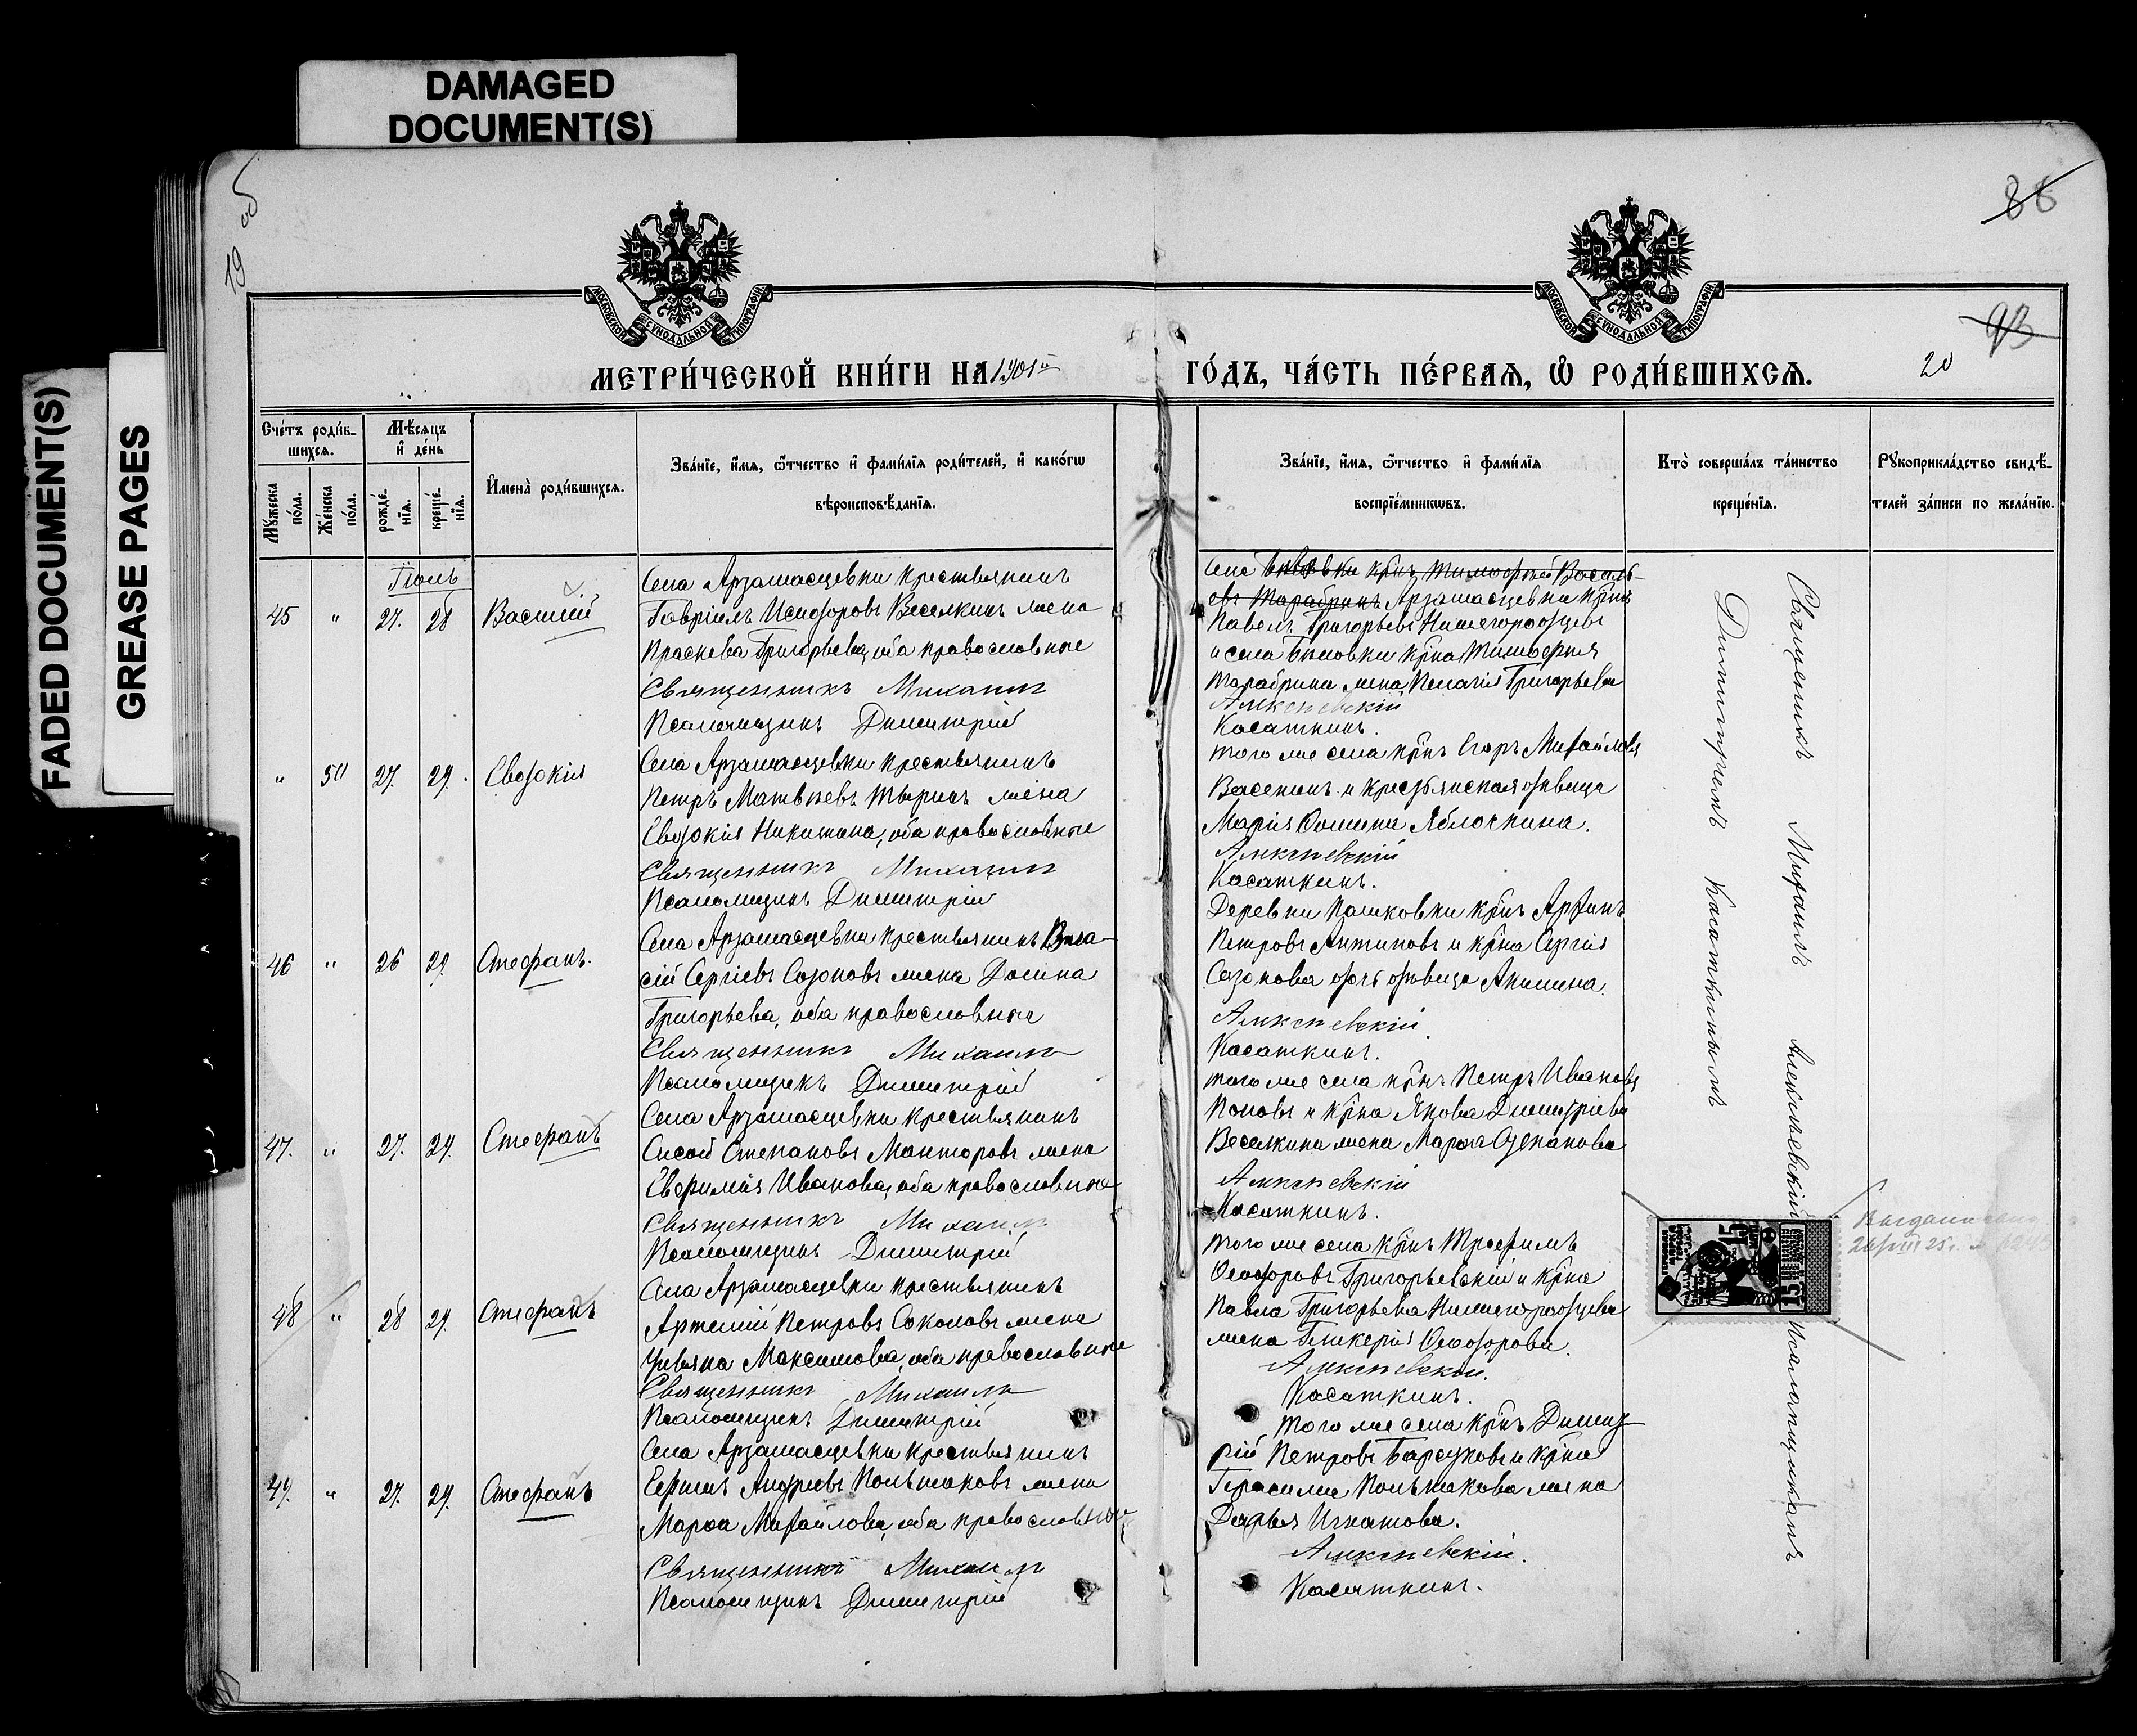 DAMAGED
DOCUMENT(S)
FADED DOCUMENT(S)
GREASE PAGES
19 об
88
93
20
МОСКОВСКОЙ СѴНОДАЛЬНОЙ ТИПОГРАФІИ
МОСКОВСКОЙ СѴНОДАЛЬНОЙ ТИПОГРАФІИ
МЕТРИ́ЧЕСКОЙ КНИ́ГИ НА 1901й
ГО́ДЪ, ЧА́СТЬ ПЕ́РВАѦ, Ѡ҆ РОДИ́ВШИХСѦ.
Сче́тъ роди́в-
шихсѧ.
Мꙋжеска
по́ла.
Же́нска
по́ла.
Мѣ́сѧцъ
и҆ де́нь
рожде́-
нїѧ.
креще́-
нїѧ.
И҆мена̀ роди́вшихсѧ.
Зва́нїе, и҆́мѧ, ѻ҆́тчество и҆ фами́лїѧ роди́телей, и҆ како́гѡ
вѣроисповѣ́данїѧ.
Зва́нїе, и҆́мѧ, ѻ҆́тчество и҆ фами́лїѧ
воспрїе́мникѡвъ.
Кто̀ соверша́лъ та́инство
креще́нїѧ.
Рꙋкоприкла́дство свидѣ́-
телей за́писи по жела́нїю.
Іюль
45 " 27. 28 Василій
Села Арзамасцевки крестьянинъ
Гавріилъ Исидоровъ Веселкинъ жена
Праскева Григорьева, оба православные
Священникъ Михаилъ
Псаломщикъ Димитрій
Села Арзамасцевки крнъ
Павелъ Григорьевъ Нижегородцевъ
и села крна Тимофея
Тарабрина жена Пелагія Григорьева
Алексѣевскій
Касаткинъ.
" 50 27. 29. Евдокія
Села Арзамасцевки крестьянинъ
Петръ Матвѣевъ Тыринъ жена
Евдокія Никитина, оба православные
Священникъ Михаилъ
Псаломщикъ Димитрій
того же села крнъ Егоръ Михайловъ
Васенинъ и крестьянская дѣвица
Марія Ѳомина Яблочкина.
Алексѣевскій
Касаткинъ.
46 " 26 29 Стефанъ.
Села Арзамасцевки крестьянинъ Вла-
сій Сергіевъ Созоновъ жена Домна
Григорьева, оба православные
Священникъ Михаилъ
Псаломщикъ Димитрій
Деревни Пашковки крнъ
Петровъ Антиповъ и крна Сергія
Созонова дочь дѣвица Акилина.
Алексѣевскій
Касаткинъ.
47. " 27. 29. Стефанъ
Села Арзамасцевки крестьянинъ
Сисой Степановъ Манторовъ жена
Евфимія Иванова, оба православные
Священникъ Михаилъ
Псаломщикъ Димитрій
того же села крнъ Петръ Ивановъ
Поповъ и крна Якова Димитріева
Веселкина жена Марѳа Степанова
Алексѣевскій
Касаткинъ.
48 " 28 29. Стефанъ
Села Арзамасцевки крестьянинъ
Артемій Петровъ Соколовъ жена
Ульяна Максимова, оба православные
Священникъ Михаилъ
Псаломщикъ Димитрій
того же села крнъ Трофимъ
Ѳеодоровъ Григорьевскій и крна
Павла Григорьева Нижегородцева
жена Гликерія Ѳеодорова.
Алексѣевскій.
Касаткинъ.
49. " 27. 29. Стефанъ
Села Арзамасцевки крестьянинъ
Ефимъ Андреевъ Польшаковъ жена
Марѳа Михайлова, оба православные
Священникъ Михаилъ
Псаломщикъ Димитрій
того же села крнъ Димит-
рій Петровъ Барсуковъ и крна
Герасима Польшакова жена
Дарья Игнатова.
Алексѣевскій.
Касаткинъ.
Священникъ Михаилъ Алексѣевскій Псаломщикомъ
Димитріемъ Касаткинымъ
15
15